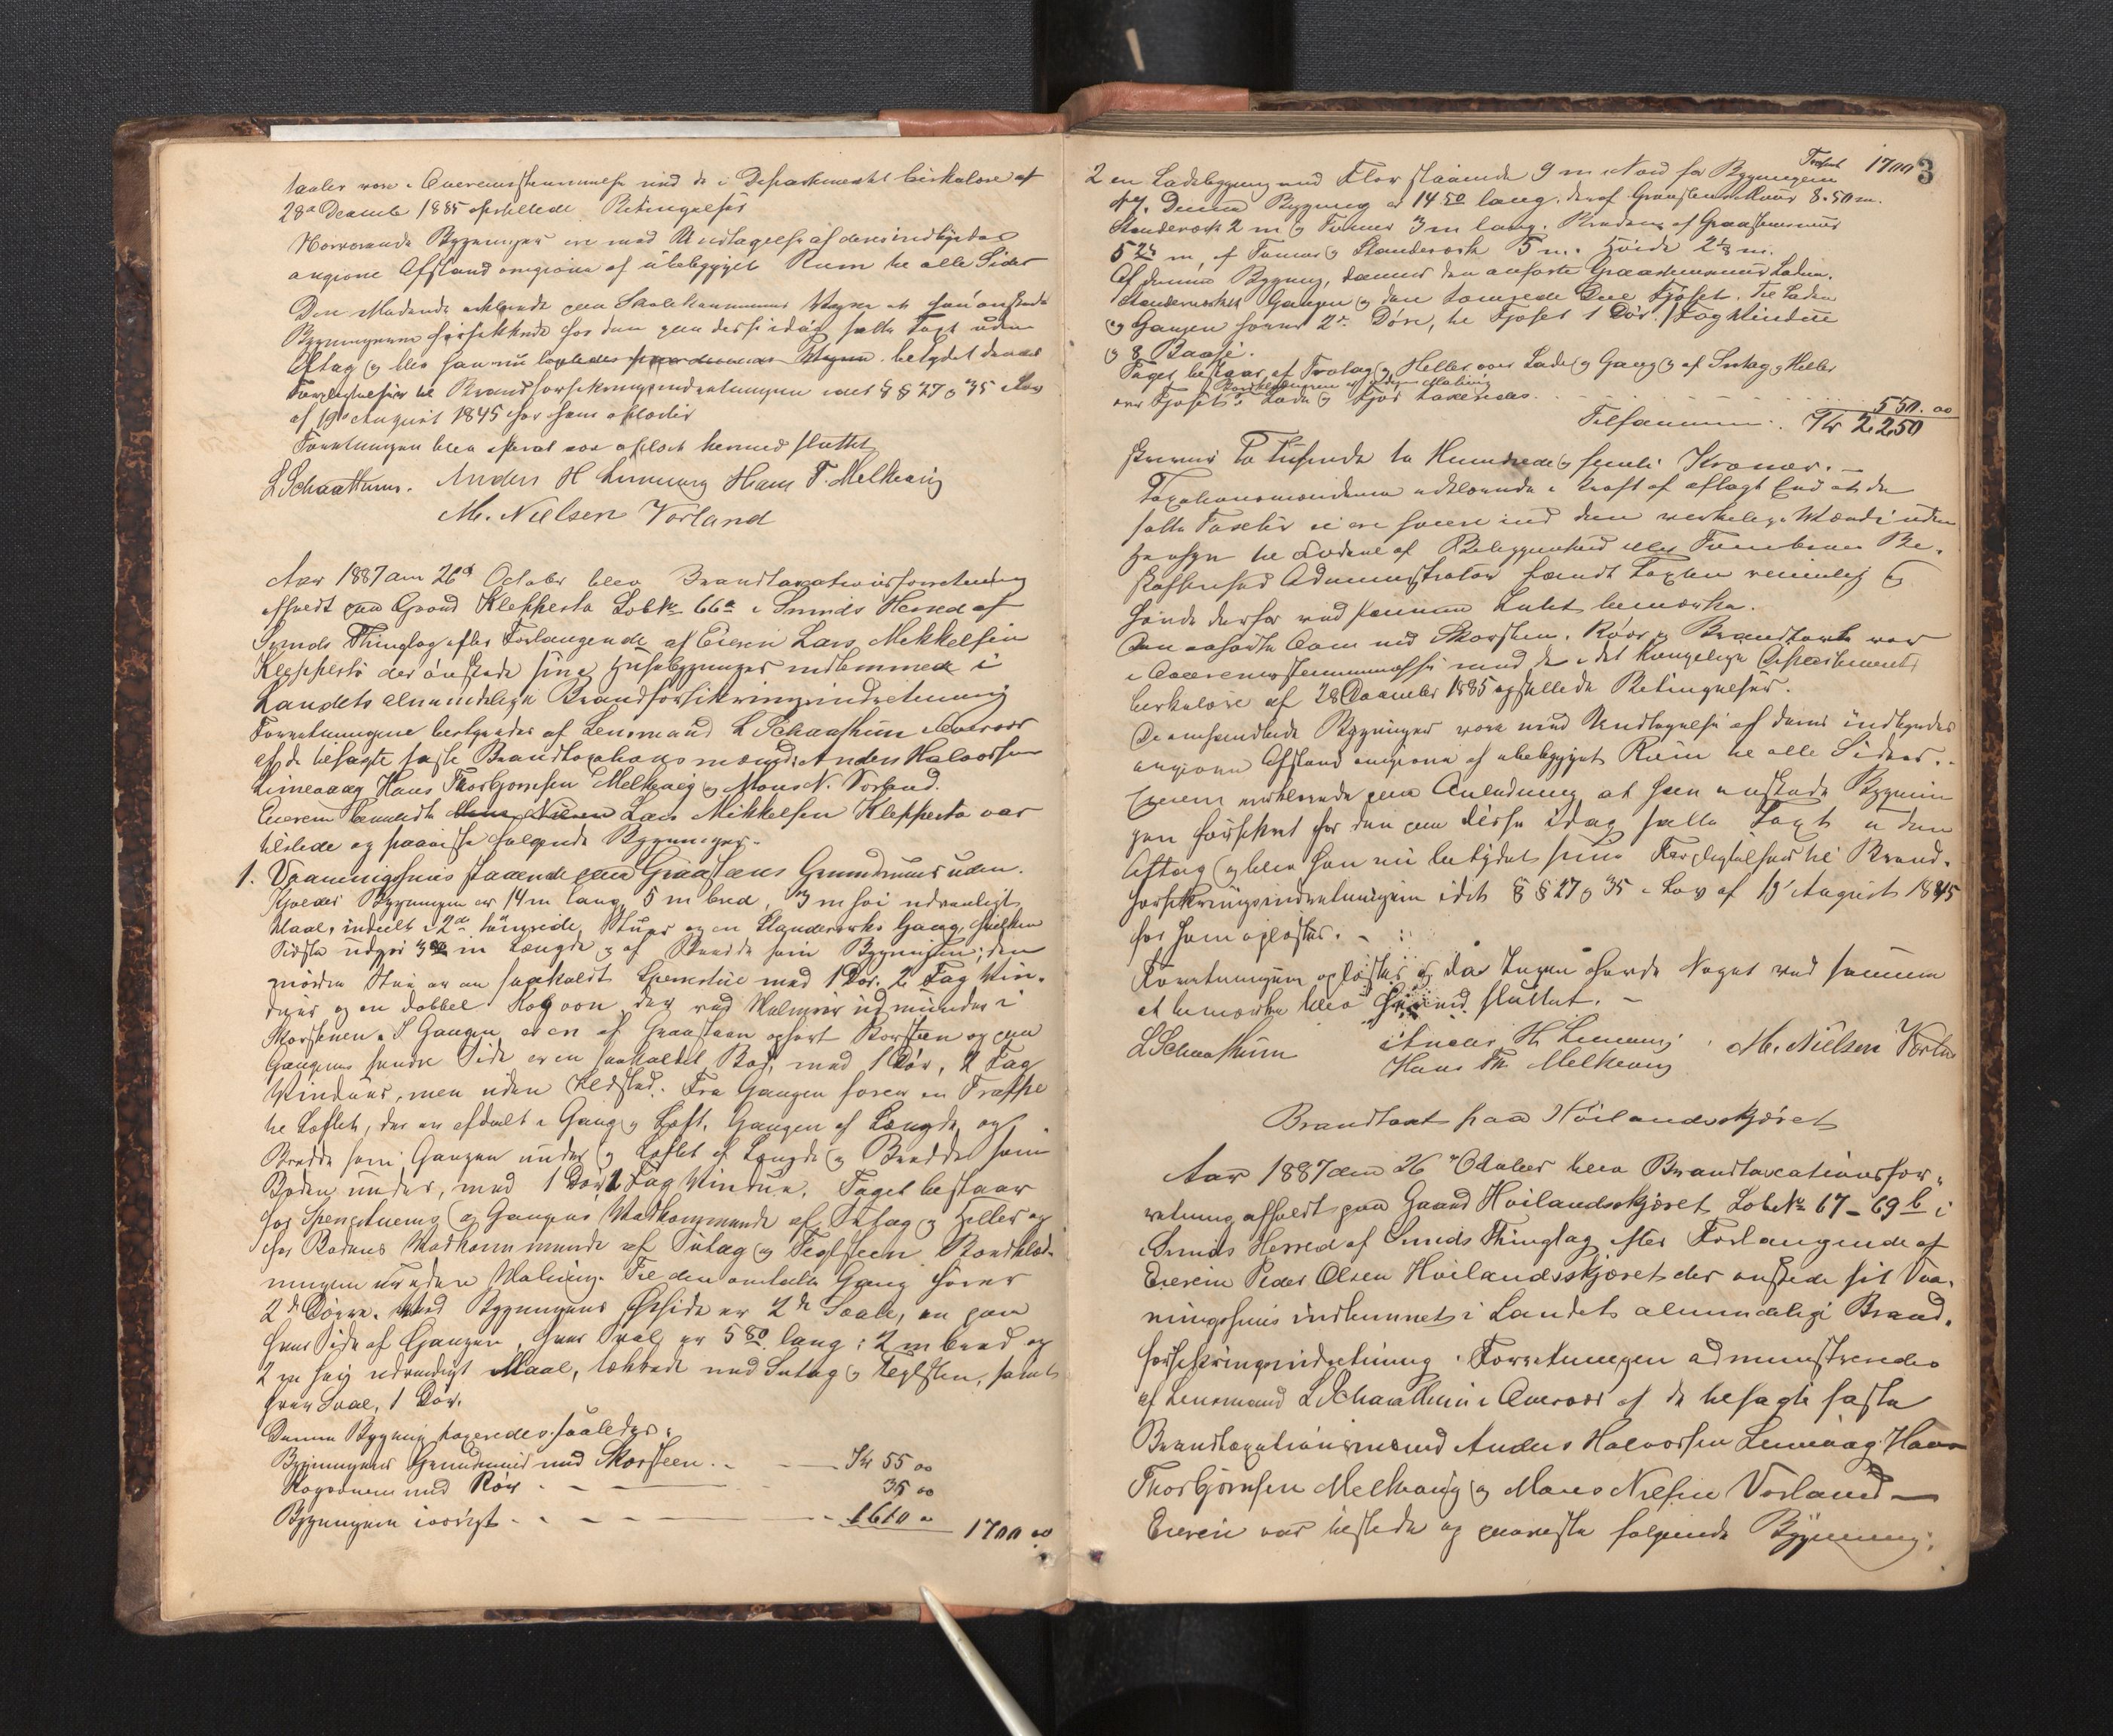 taaler vare i Overensstemmelse med de i Departementets Cirkulære af
28de December 1885 opstillede Betingelser
Nærværende Bygninger ere med Undtagelse af deres indbyrdes
angivne Afstand omgivne af ubebygget Rum til alle Sider
Den Mødende erklærede paa at han ønskede
Bygningerne forsikrede for den paa disse idag satte Taxt uden
Aftag og blev han nu betydet denes
Forpligtelser til Brandforsikringsindretningen idet §§ 27 og 35 i Lov
af 19de August 1845 for ham oplæstes
Forretningen blev oplæst hermed sluttet
L Schaathun. Anders H Limevaag Hans T. Melkevig
M. Nielsen Vorland
Aar 1887 den 26de October blev Brandtaxationsforretning
afholdt paa Gaard Kleppestø Løbe No 66a i Sunds Herred af
Sunds Thinglag efter Forlangende af Eieren Lars Mikkelsen
Kleppestø der ønskede sine Husebygninger indlemmet i
Landets almindelige Brandforsikringsindretning
Forretningen bestyredes af Lensmand L Schaathun i Overvær
af de tilsagte faste Brandtaxationsmænd: Anders Halvorsen
Limevaag Hans Thorbjørnsen Melkevig og Mons N. Vorland.
Eieren Lars Mikkelsen Kleppestø var
tilstede og paaviste følgende Bygninger.
1. Vaaningshuus staaende paa Graasteens Grundmuur uden
Kjelder Bygningen er 14 m lang, 5 m bred, 3 m høi udvendigt
Maal, indeelt i 2de Stuer og en Standerverks Gang, hvilken
Sidste udgjør 3 m i Længde og af Bredde som Bygningen; den
nordre Stue er en saakaldt Sperrestue med 1 Dør. 2 Fag Vin-
duer og en dobbel Kogovn der ved Rør udmunder i
Skorstenen. I Gangen er en af Graasteen opført Skorsten og paa
Gangens søndre Side er en saakaldet Bod, med 1 Dør, 2 Fag
Vinduer, men uden Ildsted. Fra Gangen fører en Trappe
til Loftet, der er afdeelt i Gang og Loft. Gangen af Længde og
Bredde som Gangen under og Loftet af Længde og Bredde som
Boden under, med 1 Dør 1 Fag Vindue. Taget bestaar
for Sperrstuens og Gangens Vedkommende af Sutag og Heller og
for Bodens Vedkommende af Sutag og Teglsteen. Bordklæd-
ningen er uden Maling. Til den omtalte Gang hører
2de Døre. Ved Bygningens Østside er 2de Svale, en paa
hver Side af Gangen, hver Sval er 5 80 lang: 2 m bred og
2 m høi udvendigt Maal, tækkede med Sutag og Teglsten, samt
hver Sval, 1 Dør.
Denne Bygning taxeredes saaledes:
Bygningens Grundmuur med Skorsteen . . — Kr 55 00
Kogovnen med Rør . — — 35 00
Bygningen iøvrigt . . — — 1610 "
1700 00
Transport 1700 3
2 en Ladebygning med Flor staaende 9 m Nord for Bygningen
No 1. Denne Bygning er 14 50 lang, deraf Graasteensmuur 8.50 m.
Standerverk 2 m og Tømmer 3 m lang. Bredden af Graasteensmuur
5 25 m, af Tømmer og Standerverk 5 m. Høide 2 1/2 m.
Af denne Bygning, danner den anførte Graasteensmuur Laden.
Standerverket Gangen og den tømrede Deel Fjøset. Til Laden
og Gangen hører 2de Døre, til Fjøset 1 Dør. 1 Fag Vindue
og 8 Baase.
Taget bestaar af Troltag og Heller over Lade og Gang og af Sutag og Heller
Bordklædningen er uden Maling
over Fjøset. Lade og Fjøs taxeredes . . . 550.00
Tilsammen . Kr 2250
skriver To tusinde to Hundrede og femti Kroner. —
Taxationsmændene erklærede i Kraft af aflagt Eed at de
satte Taxter ei ere høiere end den virkelige Værdi uden
Hensyn til Godhed af Beliggenhed eller Tomtens Be-
skaffenhed Administrator fandt Taxten rimelig og
havde derfor ved samme Intet bemærke.
Den anførte Ovn med Skorsten, Rør og Brandtavle var
i Overensstemmelse med de i det Kongelige Departements
Cirkulære af 28 December 1885 opstillede Betingelser.
De omhandlede Bygninger vare med Undtagelse af deres indbyrdes
angivne Afstand omgivne af ubebygget Rum til alle Sider.
Eieren erklærede paa Anledning at han ønskede Bygnin
gen forsikret for den paa disse idag satte Taxt uden
Aftag og blev han nu betydet sine Forpligtelser til Brand-
forsikringsindretningen idet §§ 27 og 35 i Lov af 19 August 1845
for ham oplæstes. —
Forretningen oplæstes og da Ingen havde Noget ved samme
at bemærke blev hermed sluttet. —
L Schaathun Anders H. Limevaag M. Nielsen Vorland
Hans Th. Melkevig
Brandtaxt paa Høilandsskjæret
Aar 1887 den 26de October blev Brandtaxationsfor-
retning afholdt paa Gaard Høilandsskjæret Løbe No 67-69 b i
Sunds Herred af Sunds Thinglag efter Forlangende af
Eieren Peder Olsen Høilandsskjæret der ønskede sit Vaa-
ningshuus indlemmet i Landets almindelige Brand-
forsikringsindretning. Forretningen administreredes
af Lensmand L Schaathun i Overvær af de tilsagte faste
Brandtaxationsmænd Anders Halvorsen Limevaag Hans
Thorbjørnsen Melkevig og Mons Nilsen Vorland —
Eieren var tilstede og paaviste følgende Bygning: